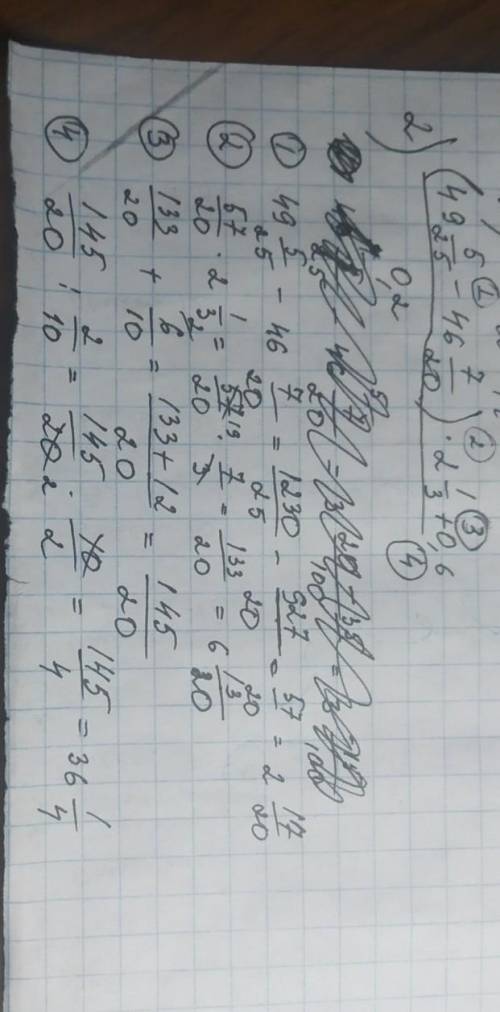 2) (49 5/25 − 46 7/20) · 2 1/3 + 0,6
0,2
① 49 5/25 − 46 7/20 = 1230/25 − 927/20 = 57/20 = 2 17/20
② 57/20 · 2 1/3 = 57/20 · 7/3 = 133/20 = 6 13/20
③ 133/20 + 6/10 = 133+12/20 = 145/20
④ 145/20 : 2/10 = 145/20 · 10/2 = 145/4 = 36 1/4